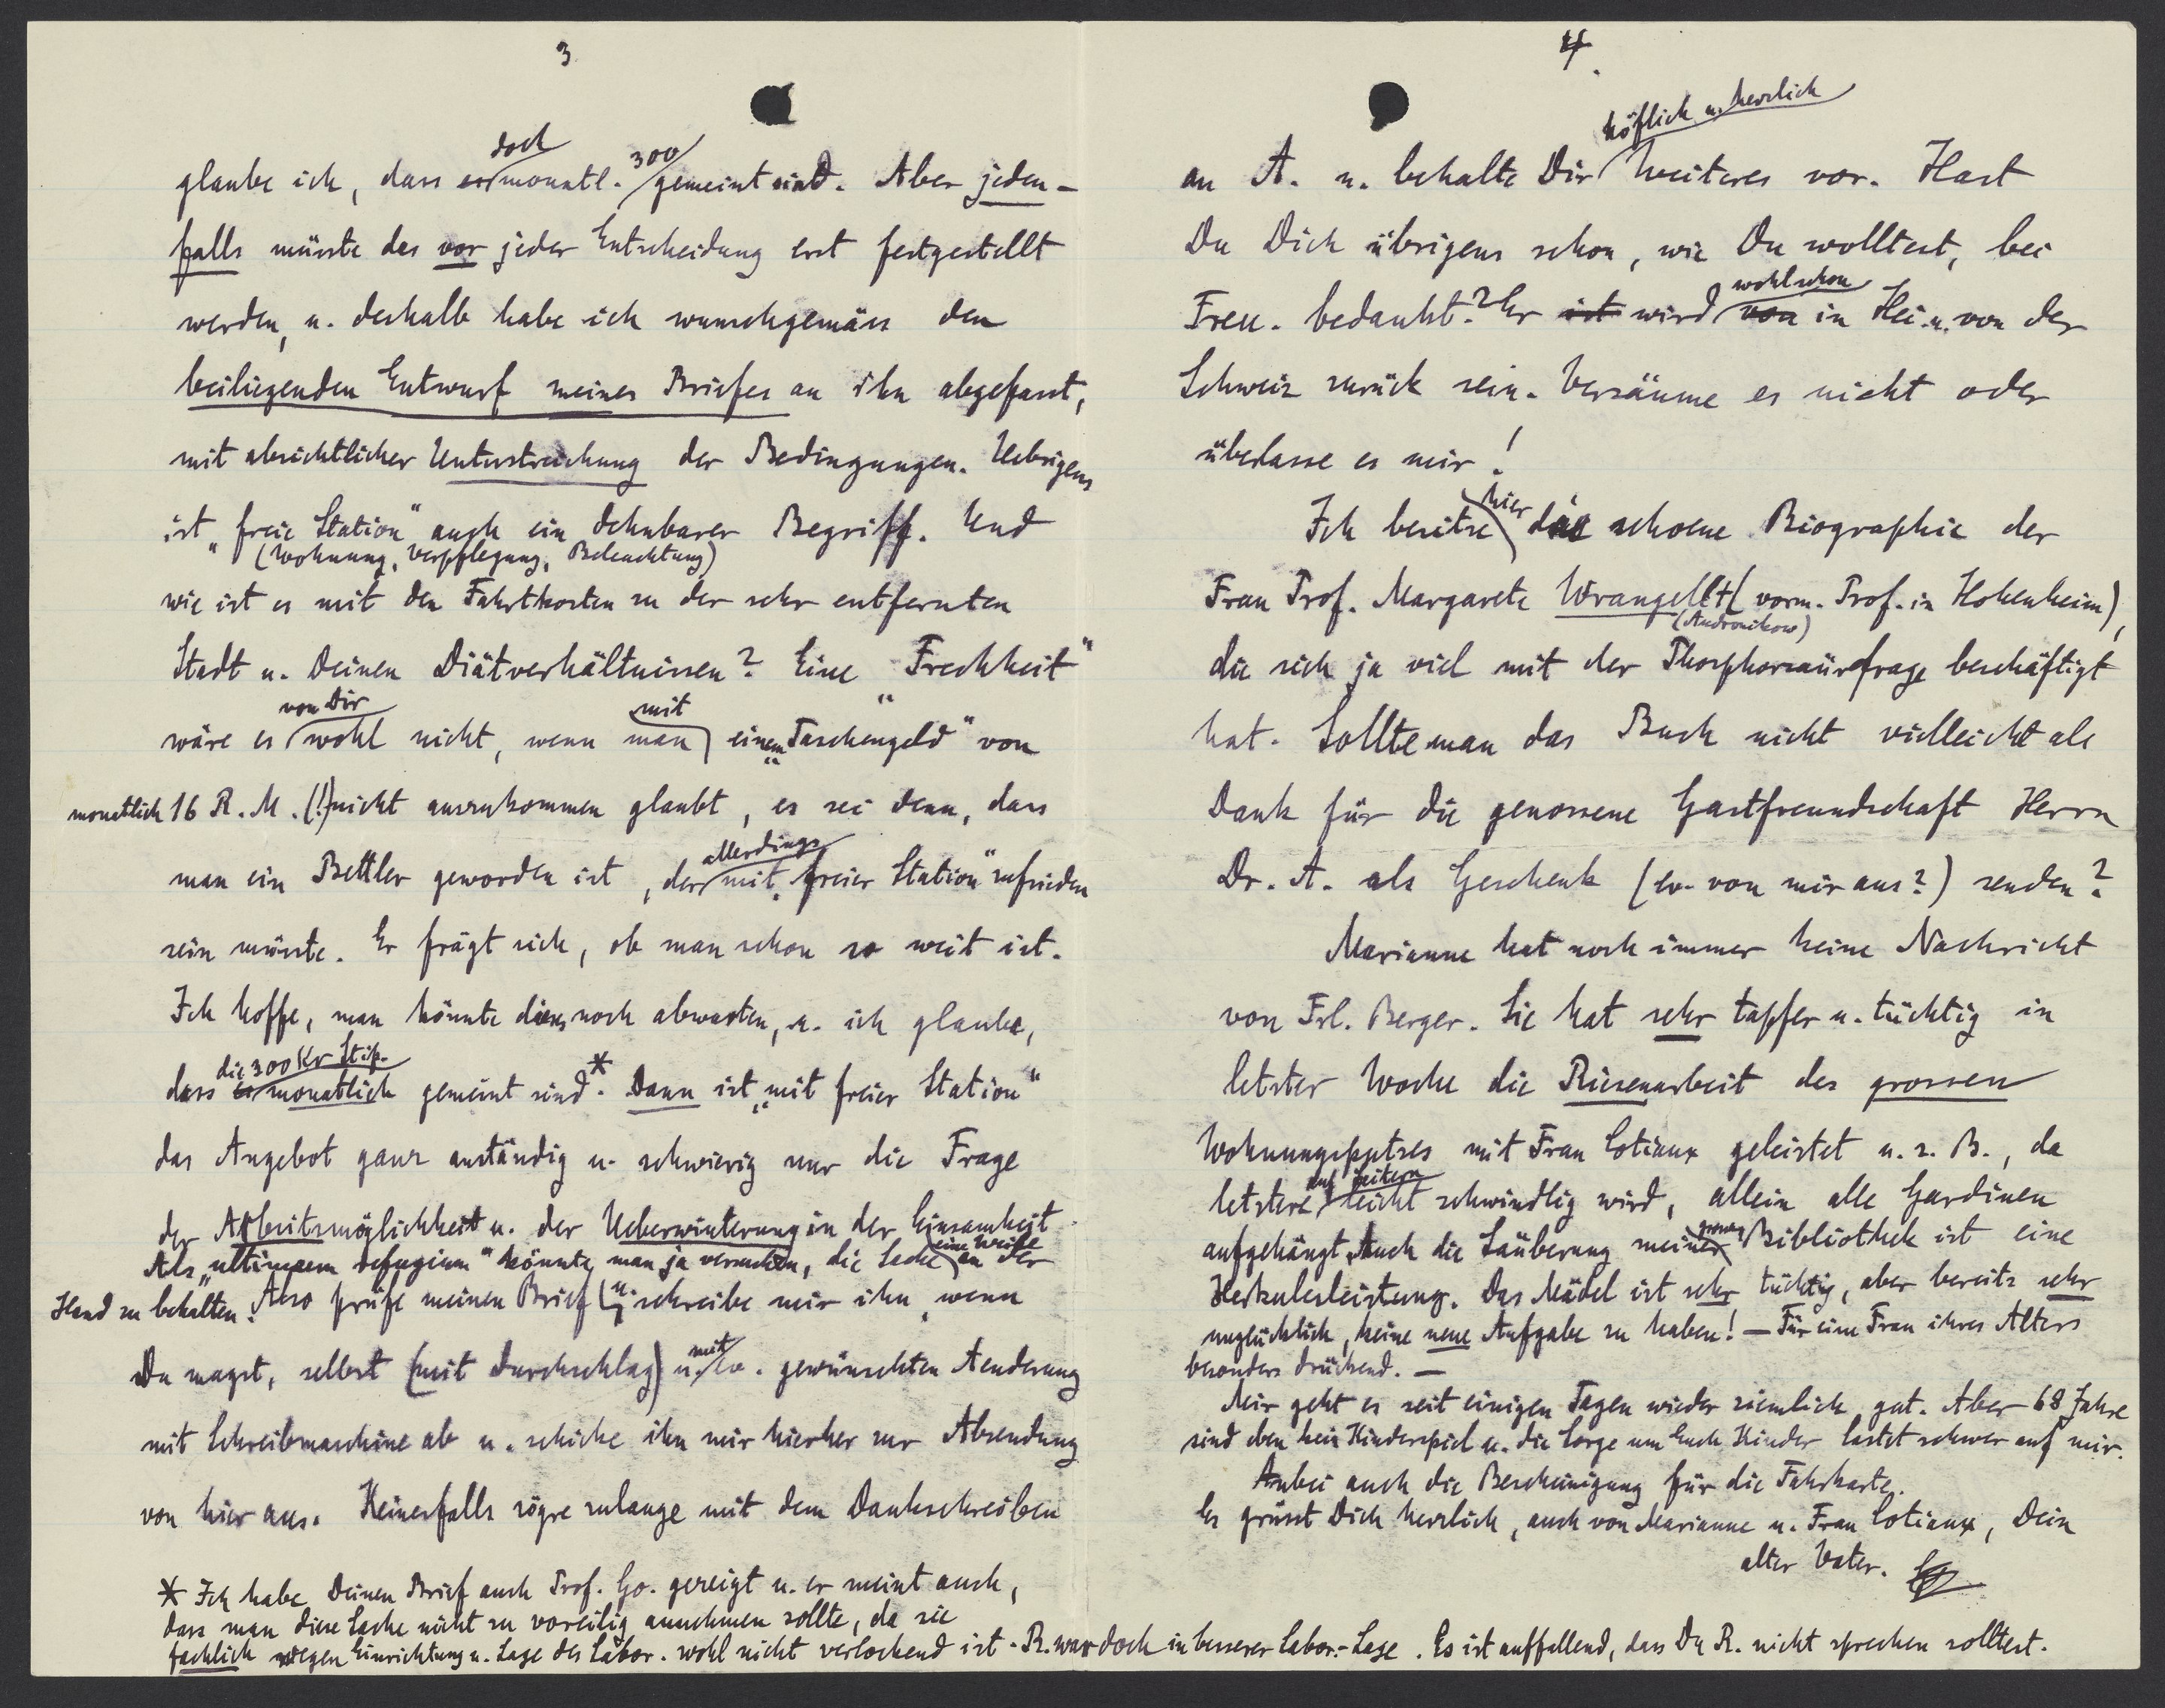 3
glaube ich, dass doch monatl. 300 gemeint sind. Aber jeden-
falls müsste das vor jeder Entscheidung erst festgestellt
werden, u. deshalb habe ich wunschgemäss den
beiliegenden Entwurf meines Briefes an ihn abgefasst,
mit absichtlicher Unterstreichung der Bedingungen. Uebrigens
ist „freie Station" auch ein dehnbarer Begriff. Und
(Wohnung, Verpflegung, Beleuchtung)
wie ist es mit den Fahrtkosten zu der sehr entfernten
Stadt u. Deinen Diätverhältnissen? Eine „Frechheit"
wäre es von Dir wohl nicht, wenn man mit einem „Taschengeld" von
monatlich 16 R.M. (!) nicht auszukommen glaubt, es sei denn, dass
man ein Bettler geworden ist, der allerdings mit „freier Station" zufrieden
sein müsste. Er frägt sich, ob man schon so weit ist.
Ich hoffe, man könnte dieses noch abwarten, u. ich glaube,
dass die 300 Kr Stip. monatlich gemeint sind.* Dann ist „mit freier Station"
das Angebot ganz anständig u. schwierig nur die Frage
der Arbeitsmöglichkeit u. der Ueberwinterung in der Einsamkeit.
Als „ultimum refugium" könnte man ja versuchen, die Sache eine Weile an der
Hand zu behalten. Also prüfe meinen Brief u. schreibe mir ihn, wenn
Du magst, selbst (mit Durchschlag) u. mit ev. gewünschten Aenderung
mit Schreibmaschine ab u. schicke ihn mir hierher zur Absendung
von hier aus. Keinesfalls zögre zulange mit dem Dankschreiben
* Ich habe Deinen Brief auch Prof. Go. gezeigt u. er meint auch,
dass man diese Sache nicht zu voreilig annehmen sollte, da sie
fachlich wegen Einrichtung u. Lage des Labor. wohl nicht verlockend ist. R. war doch in besserer Labor.-Lage. Es ist auffallend, dass Du R. nicht sprechen solltest.
4.
an A. u. behalte Dir höflich u. herzlich Weiteres vor. Hast
Du Dich übrigens schon, wie Du wolltest, bei
Freu. bedankt? Er ist wird wohl schon von in Hei. u. von der
Schweiz zurück sein. Versäume es nicht oder
überlasse es mir!
Ich besitze hier die schoene Biographie der
Frau Prof. Margarete Wrangell† (vorm. Prof. in Hohenheim),
(Andronikow)
die sich ja viel mit der Phosphorsäurefrage beschäftigt
hat. Sollte man das Buch nicht vielleicht als
Dank für die genossene Gastfreundschaft Herrn
Dr. A. als Geschenk (ev. von mir aus?) senden?
Marianne hat noch immer keine Nachricht
von Frl. Berger. Sie hat sehr tapfer u. tüchtig in
letzter Woche die Riesenarbeit des grossen
Wohnungsputzes mit Frau Cotiaux geleistet u. z. B., da
letztere auf Leitern leicht schwindlig wird, allein alle Gardinen
aufgehängt. Auch die Säuberung meiner grossen Bibliothek ist eine
Herkulesleistung. Das Mädel ist sehr tüchtig, aber bereits sehr
unglücklich, keine neue Aufgabe zu haben! – Für eine Frau ihres Alters
besonders drückend. –
Mir geht es seit einigen Tagen wieder ziemlich gut. Aber 68 Jahre
sind eben kein Kinderspiel u. die Sorge um Euch Kinder lastet schwer auf mir.
Anbei auch die Bescheinigung für die Fahrkarte.
Es grüsst Dich herzlich, auch von Marianne u. Frau Cotiaux, Dein
alter Vater.